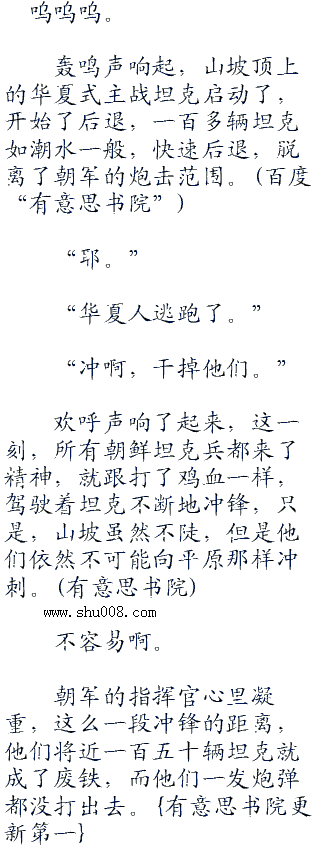 呜呜呜。
轰鸣声响起，山坡顶上
的华夏式主战坦克启动了，
开始了后退，一百多辆坦克
如潮水一般，快速后退，脱
离了朝军的炮击范围。(百度
“有意思书院”)
“耶。”
“华夏人逃跑了。”
“冲啊，干掉他们。”
欢呼声响了起来，这一
刻，所有朝鲜坦克兵都来了
精神，就跟打了鸡血一样，
驾驶着坦克不断地冲锋，只
是，山坡虽然不陡，但是他
们依然不可能向平原那样冲
刺。(有意思书院)
www.shu008.com
不容易啊。
朝军的指挥官心里凝
重，这么一段冲锋的距离，
他们将近一百五十辆坦克就
成了废铁，而他们一发炮弹
都没打出去。{有意思书院更
新第一}